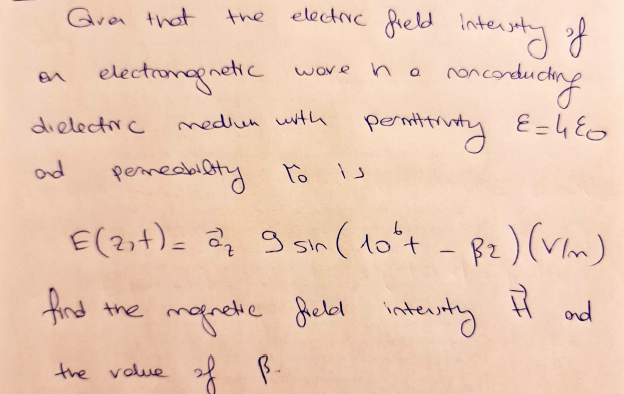 Given that the electric field intensity of
an electromagnetic wave in a nonconducting
dielectric medium with permittivity ε=4ε₀
and permeability μ₀ is
E(z,t)= a⃗_z 9 sin(10⁶t - βz)(V/m)
find the magnetic field intensity H⃗ and
the value of β.